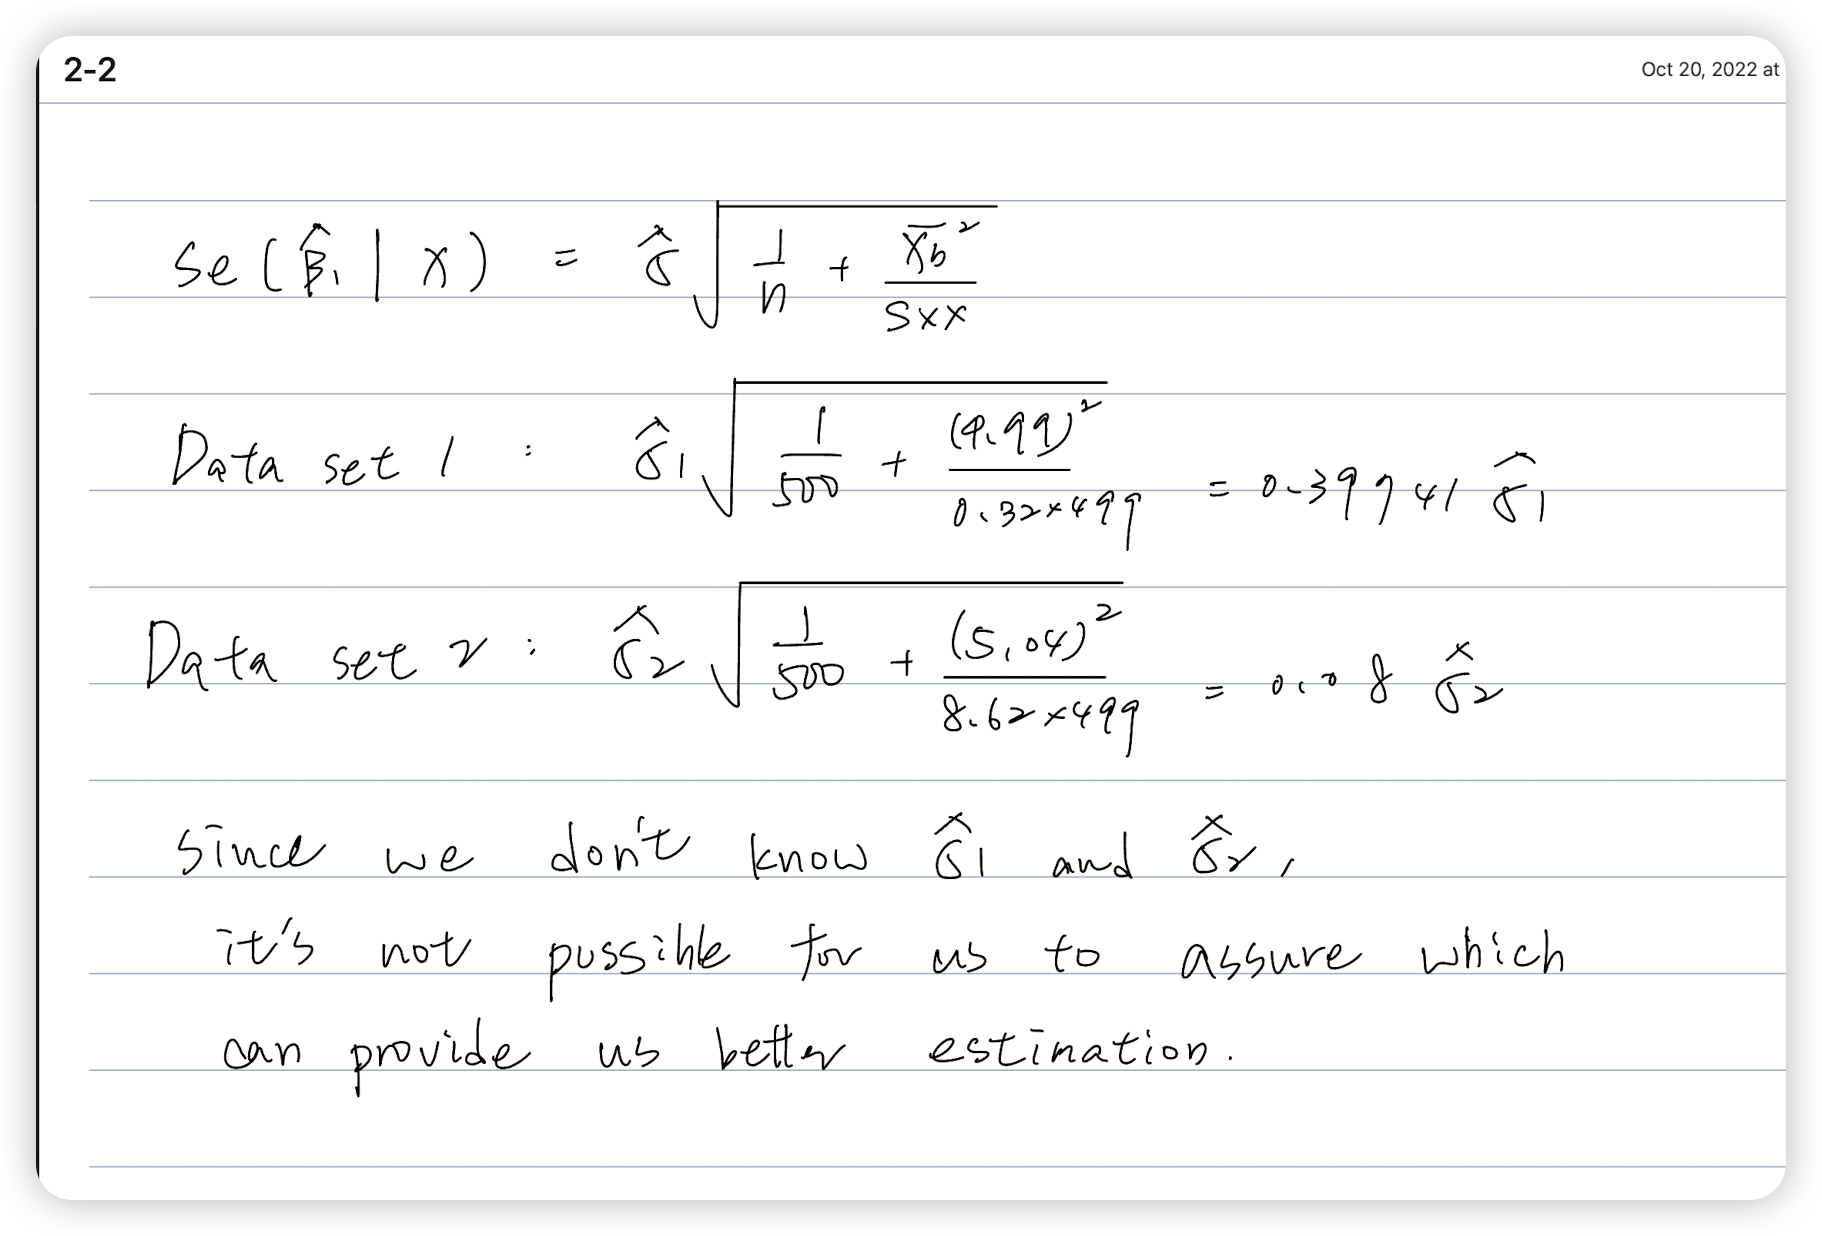 2-2
Oct 20, 2022 at
se(β̂₁ | X) = σ̂ √(1/n + X̄b²/SXX)
Data set 1 : σ̂₁ √(1/500 + (4.99)²/(0.32×499)) = 0.399741 σ̂₁
Data set 2 : σ̂₂ √(1/500 + (5.04)²/(8.62×499)) = 0.08 σ̂₂
since we don't know σ̂₁ and σ̂₂,
it's not possible for us to assure which
can provide us better estimation.